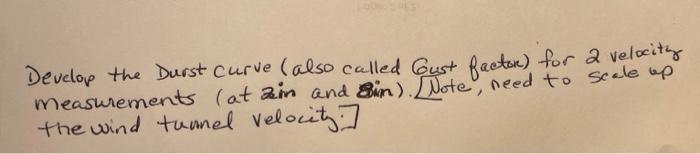 Develop the Durst curve (also called Gust factor) for 2 velocity
measurements (at 2in and 8in). [Note, need to scale up
the wind tunnel velocity.]